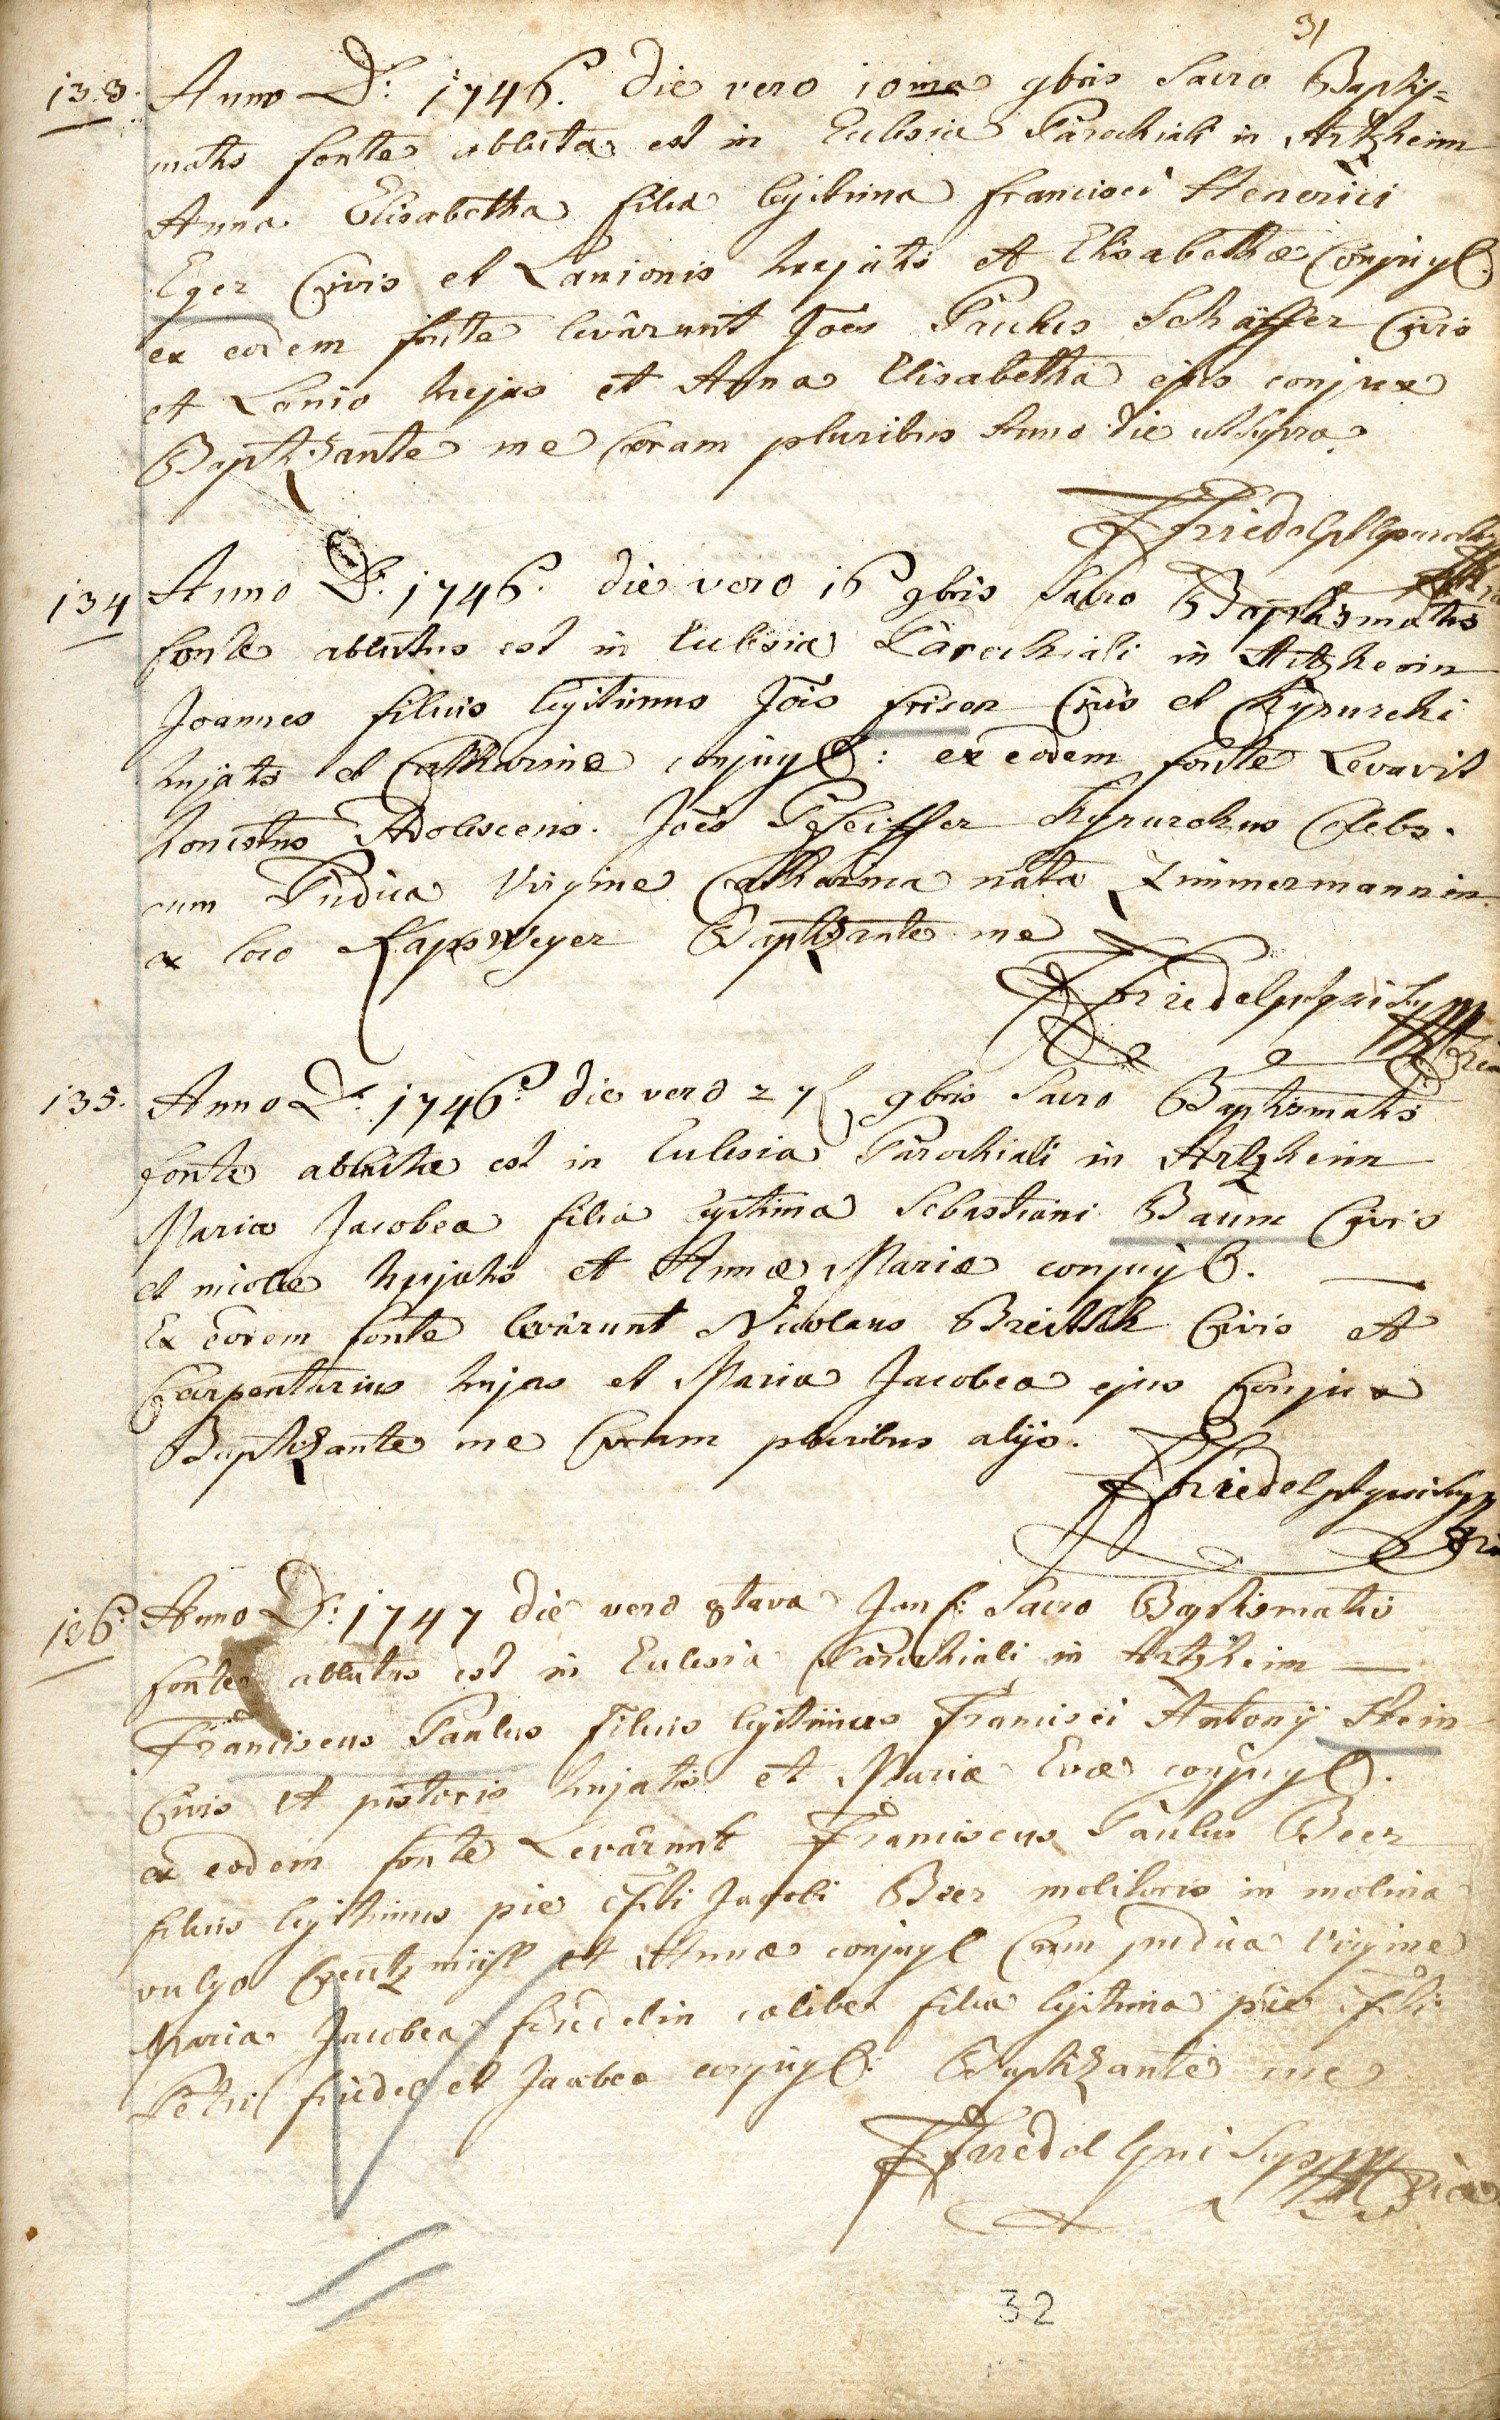 31
133. Anno D: 1746. die vero 10ma 9bris Sacro Baptis=
matis fonte abluta est in Eclesia Parochiali in Artzheim
Anna Elisabetha filia legitima Francisci Henerici
Eger Civis et Lanionis hujatis et Elisabethæ Conjug
ex eodem fonte levârunt Jöes Paulus Schäffer Civis
et Lanio hujas et Anna Elisabetha ejus conjux
Baptizante me Coram pluribus Anno die ut Supra.
Friedel
134 Anno D: 1746. die vero 16 9bris Sacro Baptismatis
fonte ablutus est in Eclesia Parochiali in Artzheim
Joannes filius legitimus Jöis friser Civis et Kÿpurchi
hujatis et Catharinæ conjug: ex eodem fonte Levavit
honestus Adolescens. Jöes Pfeiffer Kypurchus Celebs.
cum Pudica Virgine Catharina nata Zimmermannin
ex loco Kapsweyer Baptizante me
Friedel
135. Anno D: 1746. die vero 27 9bris Sacro Baptismatis
fonte ablutæ est in Eclesia Parochiali in Artzheim
Maria Jacobea filia legitima Sebastiani Baum Civis
et incolæ hujatis et Annæ Mariæ conjug.
Ex eodem fonte levârunt Nicolaus Breitsch Civis et
Carpentarius hujas et Maria Jacobea ejus Conjux
Baptizante me Coram pluribus alijs.
Friedel
136. Anno D: 1747 die vero 8tava Jan: Sacro Baptismatis
fonte ablutus est in Eclesia Parochiali in Artzheim
Franciscus Paulus Filius legitimus Francisci Antonÿ Stein
Civis et pistoris hujatis et Mariæ Evæ conjug.
ex eodem fonte Levârunt Franciscus Paulus Beer
filius legitimus pie Jacobi Beer molitoris in molina
vulgo et Annæ conjug Cum pudica Virgine
Maria Jacobea friedelin cælibe filia legitima pie
Petri friedel et Jacobeæ conjug: Baptizante me
Friedel
32